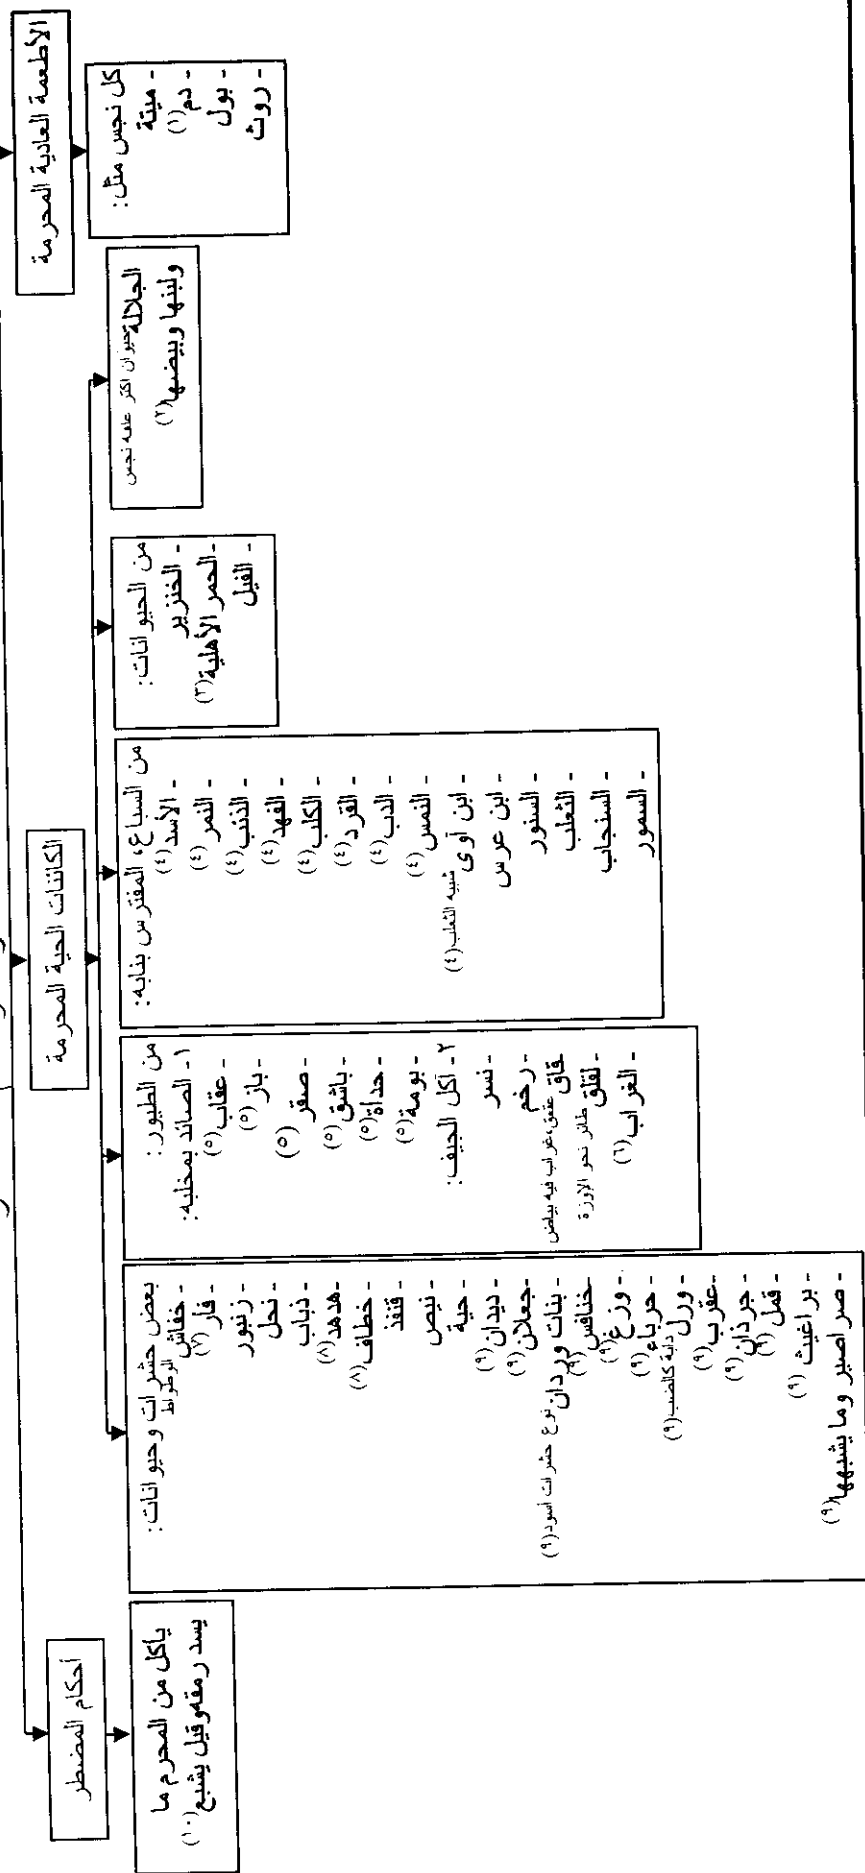 الأطعمة العادية المحرمة
كل نجس مثل:
- ميتة
- دم(١)
- بول
- روث
الكائنات الحية المحرمة
الجلالة حيوان أكثر علفه نجس
ولبنها وبيضها(٢)
من الحيوانات:
- الخنزير
- الحمر الأهلية(٣)
- الفيل
من السباع، المفترس بنابه:
- الأسد(٤)
- النمر(٤)
- الذئب(٤)
- الفهد(٤)
- الكلب(٤)
- القرد(٤)
- الدب(٤)
- النمس(٤)
- ابن آوى شبيه الثعلب(٤)
- ابن عرس
- السنور
- الثعلب
- السنجاب
- السمور
من الطيور:
١- الصائد بمخلبه:
- عقاب(٥)
- باز(٥)
- صقر(٥)
- باشق(٥)
- حدأة(٥)
- بومة(٥)
٢- آكل الجيف:
- نسر
- رخم
- قاق عقعق، غراب فيه بياض
- لقلق طائر نحو الإوزة
- الغراب(٦)
بعض حشرات وحيوانات:
- خفاش الوطواط
- فأر(٧)
- زنبور
- نحل
- ذباب
- هدهد(٨)
- خطاف(٨)
- قنفذ
- نيص
- حية
- ديدان(٩)
- جعلان(٩)
- بنات وردان نوع حشرات أسود(٩)
- خنافس(٩)
- وزغ(٩)
- حرباء(٩)
- ورل دابة كالضب(٩)
- عقرب(٩)
- جرذان(٩)
- قمل(٩)
- براغيث(٩)
- صراصير وما يشبهها(٩)
أحكام المضطر
يأكل من المحرم ما
يسد رمقه وقيل يشبع(١٠)